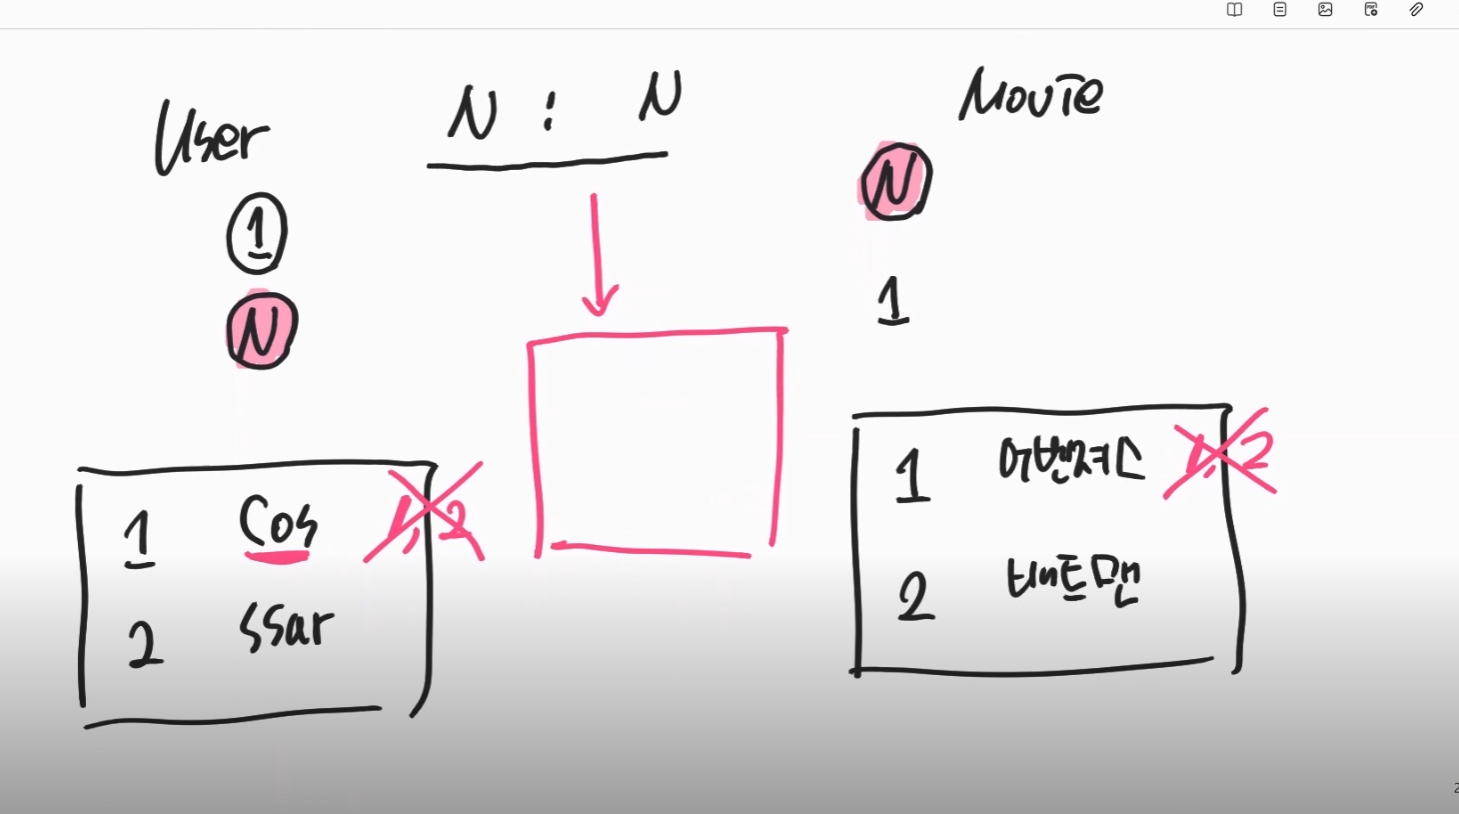 User
N : N
Movie
1
N
N
1
1 Cos 1, 2
2 ssar
1 어벤져스 1, 2
2 배트맨
2